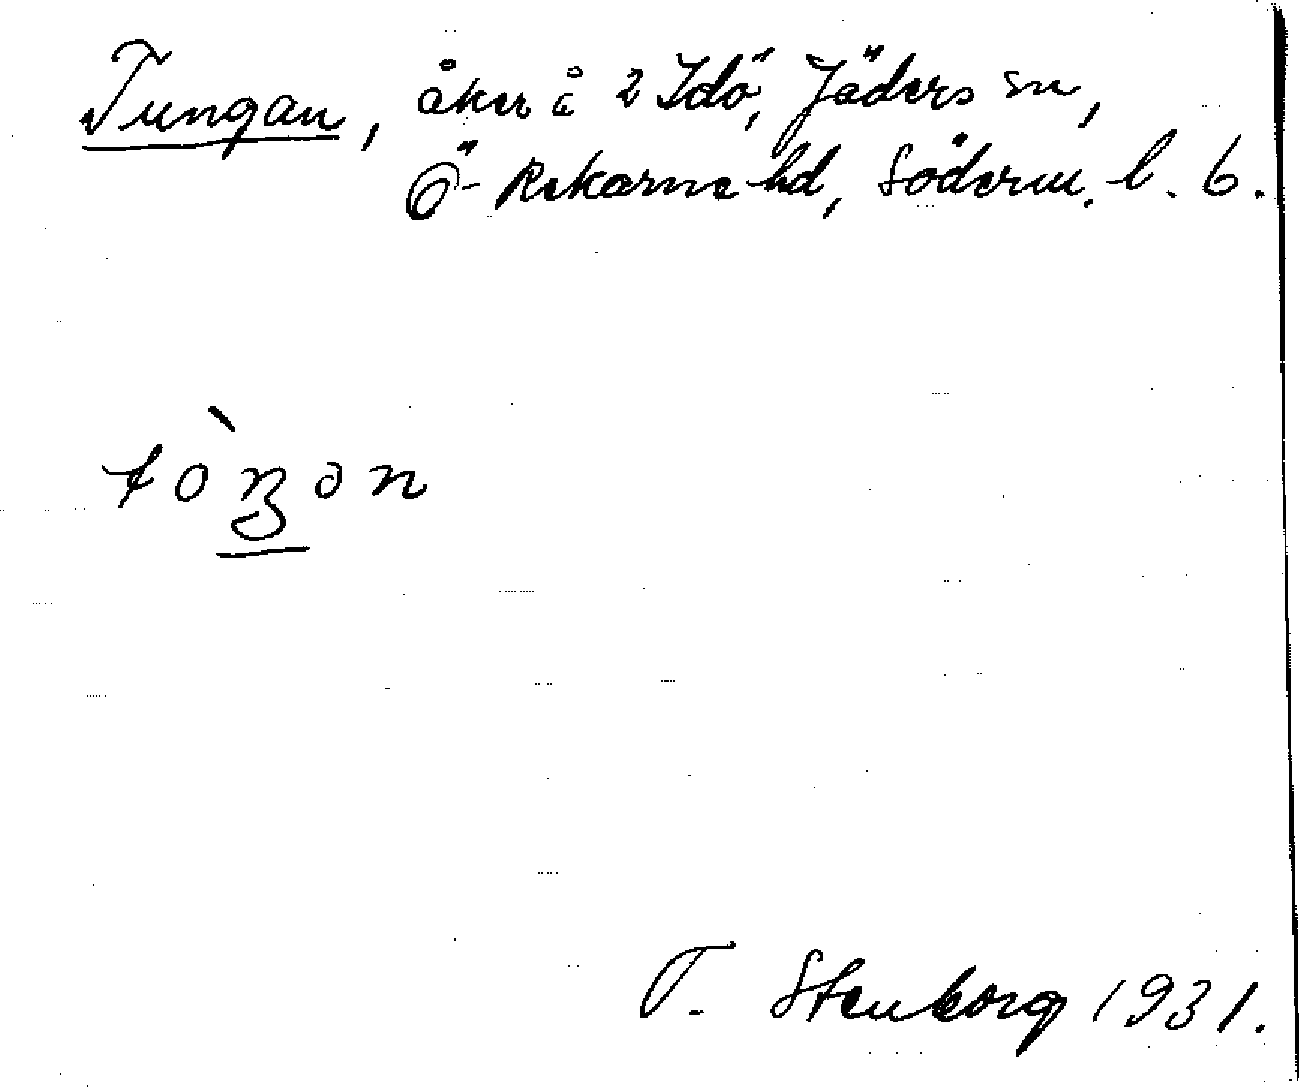 Tungan, åker å 2 Idö, Jäders sn,
Ö- Rekarne hd, Söderm. l. 6.
tòŋən
T. Stenborg 1931.